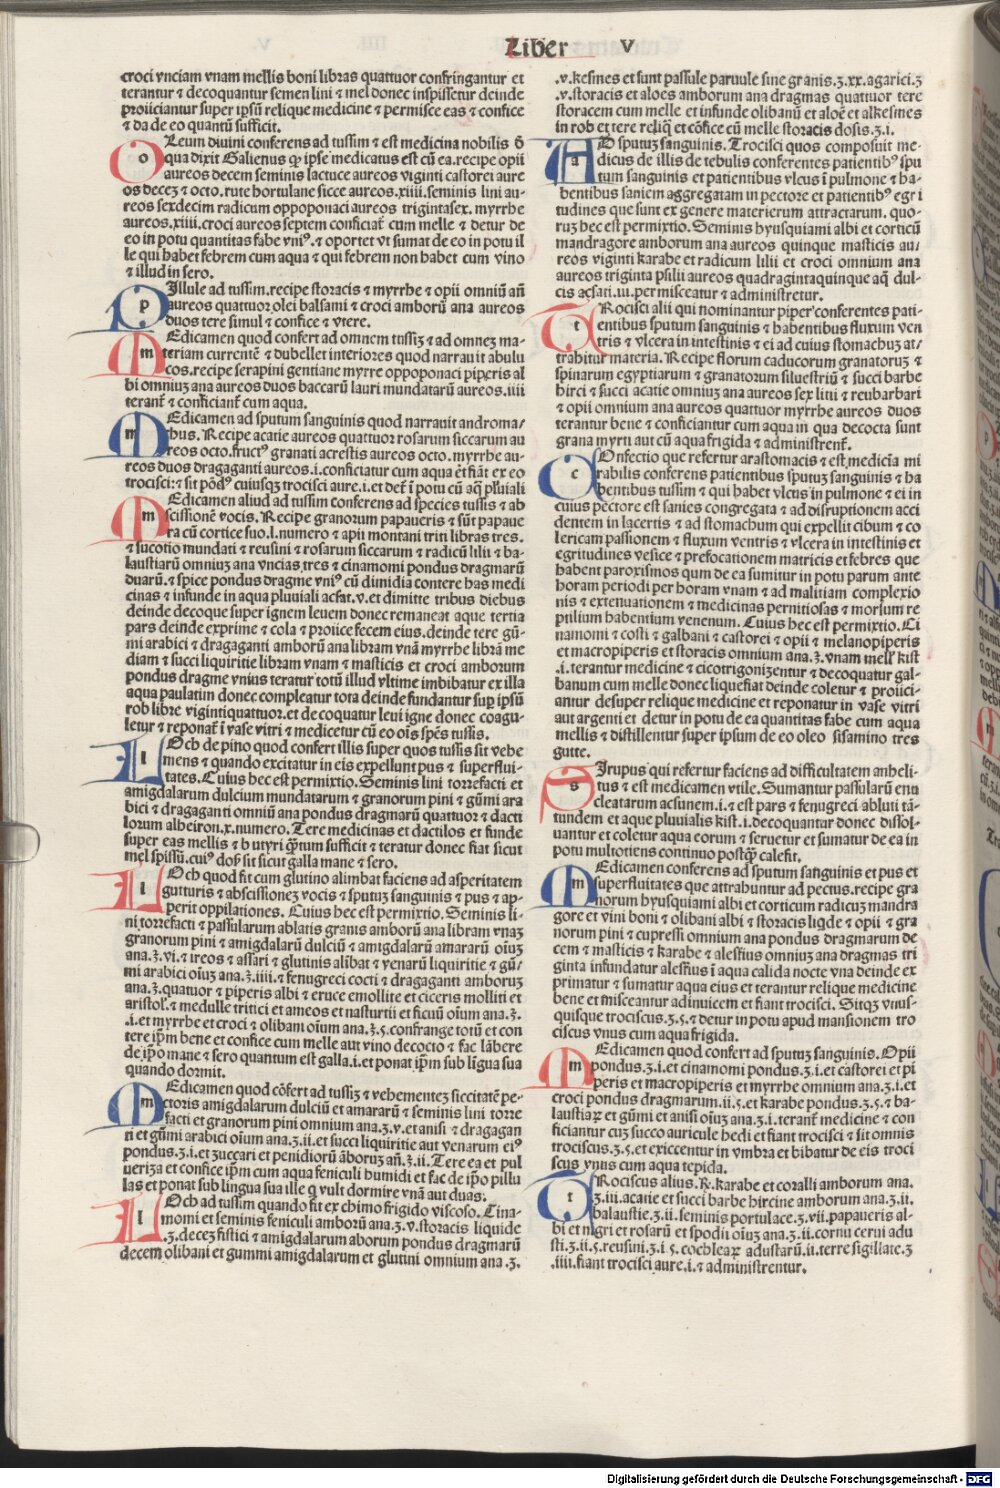 Liber V
croci vnciam vnam mellis boni libras quattuor confringantur et
terantur ⁊ decoquantur semen lini ⁊ mel donec inspissetur deinde
proiiciantur super ipsū relique medicine ⁊ permisce eas ⁊ confice
⁊ da de eo quantū sufficit.
o Leum diuini conferens ad tussim ⁊ est medicina nobilis d̄
qua dixit Galienus ꝙ ipse medicatus est cū ea. recipe opii
aureos decem seminis lactuce aureos viginti castorei aure
os decez ⁊ octo. rute hortulane sicce aureos.xiiii. seminis lini au-
reos sexdecim radicum oppoponaci aureos trigintasex. myrrhe
aureos.xiiii.croci aureos septem conficiat̄ cum melle ⁊ detur de
eo in potu quantitas fabe vniꝰ.⁊ oportet vt sumat de eo in potu il
le qui habet febrem cum aqua ⁊ qui febrem non habet cum vino
⁊ illud in sero.
p Illule ad tussim.recipe storacis ⁊ myrrhe ⁊ opii omniū an̄
aureos quattuor.olei balsami ⁊ croci amborū ana aureos
duos tere simul ⁊ confice ⁊ vtere.
m Edicamen quod confert ad omnem tussiz ⁊ ad omnez ma-
teriam currentē ⁊ dubellet interiores quod narrauit abulu
cos.recipe serapini gentiane myrre oppoponaci piperis al
bi omniuz ana aureos duos baccarū lauri mundatarū aureos.iiii
terant̄ ⁊ conficiant̄ cum aqua.
m Edicamen ad sputum sanguinis quod narrauit androma/
chus. Recipe acatie aureos quattuor rosarum siccarum au
reos octo.fructꝰ granati acrestis aureos octo.myrrhe au-
reos duos dragaganti aureos.i.conficiatur cum aqua ēt fiāt ex eo
trocisci:⁊ sit pōdꝰ cuiusqz trocisci aure.i.et det̄ ī potu cū aq̄ pluuiali
m Edicamen aliud ad tussim conferens ad species tussis ⁊ ab
scissionē vocis. Recipe granorum papaueris ⁊ sūt papaue
ra cū cortice suo.l.numero ⁊ apii montani triti libras tres.
⁊ sucotio mundati ⁊ reusini ⁊ rosarum siccarum ⁊ radicū lilii ⁊ ba-
laustiarū omniuz ana vncias tres ⁊ cinamomi pondus dragmarū
duarū.⁊ spice pondus dragme vniꝰ cū dimidia contere has medi
cinas ⁊ infunde in aqua pluuiali acsat.v.et dimitte tribus diebus
deinde decoque super ignem leuem donec remaneat aque tertia
pars deinde exprime ⁊ cola ⁊ proiice fecem eius.deinde tere gū-
mi arabici ⁊ dragaganti amborū ana libram vnā myrrhe librā me
diam ⁊ succi liquiritie libram vnam ⁊ masticis et croci amborum
pondus dragme vnius teratur totū illud vltime imbibatur ex illa
aqua paulatim donec compleatur tota deinde fundantur suꝑ ipsū
rob libre vigintiquattuor.et decoquatur leui igne donec coagu-
letur ⁊ reponat̄ ī vase vitri ⁊ medicetur cū eo oīs spēs tussis.
l Och de pino quod confert illis super quos tussis sit vehe
mens ⁊ quando excitatur in eis expellunt pus ⁊ superflui-
tates. Cuius hec est permixtio. Seminis lini torrefacti et
amigdalarum dulcium mundatarum ⁊ granorum pini ⁊ gūmi ara
bici ⁊ dragaganti omniū ana pondus dragmarū quattuor ⁊ dacti
lorum alheiron.x.numero. Tere medicinas et dactilos et funde
super eas mellis ⁊ butyri ꝙtum sufficit ⁊ teratur donec fiat sicut
mel spissū.cuiꝰ dos̄ sit sicut galla mane ⁊ sero.
l Och quod fit cum glutino alimbat faciens ad asperitatem
gutturis ⁊ abscissionez vocis ⁊ sputuz sanguinis ⁊ pus ⁊ ap-
perit oppilationes. Cuius hec est permixtio. Seminis li-
ni torrefacti ⁊ passularum ablatis granis amborū ana libram vnaz
granorum pini ⁊ amigdalarū dulciū ⁊ amigdalarū amararū oīuz
ana.ʒ.vi.⁊ ireos ⁊ assari ⁊ glutinis alībat ⁊ venarū liquiritie ⁊ gū/
mi arabici oīuz ana.ʒ.iiii.⁊ fenugreci cocti ⁊ dragaganti amboruz
ana.ʒ.quatuor ⁊ piperis albi ⁊ eruce emollite et ciceris molliti et
aristol.⁊ medulle tritici et ameos et nasturtii et ficuū oīum ana.ʒ.
.i.et myrrhe et croci ⁊ olibani oīum ana.ʒ.s.confrange totū et con
tere ip̄m bene et confice cum melle aut vino decocto ⁊ fac lābere
de ip̄o mane ⁊ sero quantum est galla.i.et ponat ip̄m sub līgua sua
quando dormit.
m Edicamen quod cōfert ad tussiz ⁊ vehementez siccitatē pe-
ctoris amigdalarum dulciū et amararū ⁊ seminis lini torre
facti et granorum pini omnium ana.ʒ.v.et anisi ⁊ dragagan
ti et gūmi arabici oīum ana.ʒ.ii.et succi liquiritie aut venarum eiꝰ
pondus.ʒ.i.et zuccari et penidiorū āboruz an̄.ʒ.ii. Tere ea et pul
ueriza et confice ip̄m cum aqua feniculi humidi et fac de ip̄o pillu
las et ponat sub lingua sua ille ꝙ vult dormire vnā aut duas.
l Och ad tussim quando fit ex chimo frigido viscoso. Cina-
momi et seminis feniculi amborū ana.ʒ.v.storacis liquide
.ʒ.decez fistici ⁊ amigdalarum aborum pondus dragmarū
decem olibani et gummi amigdalarum et glutini omnium ana.ʒ.
.v.kesmes et sunt passule paruule sine granis.ʒ.xx.agarici.ʒ
.v.storacis et aloes amborum ana dragmas quattuor tere
storacem cum melle et infunde olibanū et aloē et alkesmes
in rob et tere reliq̄ et cōfice cū melle storacis dosis.ʒ.i.
a D sputuz sanguinis. Trocisci quos composuit me-
dicus de illis de tebulis conferentes patientibꝰ spu
tum sanguinis et patientibus vlcus ī pulmone ⁊ ha-
bentibus saniem aggregatam in pectore et patientibꝰ egri
tudines que sunt ex genere materierum attractarum. quo-
ruz hec est permixtio. Seminis hyusquiami albi et corticū
mandragore amborum ana aureos quinque masticis au/
reos viginti karabe et radicum lilii et croci omnium ana
aureos triginta psilii aureos quadragintaquinque aq̄ dul-
cis acsati.iii.permisceatur ⁊ administretur.
t Rocisci alii qui nominantur piper conferentes pati-
entibus sputum sanguinis ⁊ habentibus fluxum ven
tris ⁊ vlcera in intestinis ⁊ ei ad cuius stomachuz at/
trahitur materia. Recipe florum caducorum granatoruz ⁊
spinarum egyptiarum ⁊ granatorum siluestriū ⁊ succi barbe
hirci ⁊ succi acatie omniuz ana aureos sex lini ⁊ reubarbari
⁊ opii omnium ana aureos quattuor myrrhe aureos duos
terantur bene ⁊ conficiantur cum aqua in qua decocta sunt
grana myrti aut cū aqua frigida ⁊ administrent̄.
c Onfectio que refertur arastomacis ⁊ est medicīa mi
rabilis conferens patientibus sputuz sanguinis ⁊ ha
bentibus tussim ⁊ qui habet vlcus in pulmone ⁊ ei in
cuius pectore est sanies congregata ⁊ ad disruptionem acci
dentem in lacertis ⁊ ad stomachum qui expellit cibum ⁊ co
lericam passionem ⁊ fluxum ventris ⁊ vlcera in intestinis et
egritudines vesice ⁊ prefocationem matricis et febres que
habent paroxismos qum de ea sumitur in potu parum ante
horam periodi per horam vnam ⁊ ad malitiam complexio
nis ⁊ extenuationem ⁊ medicinas pernitiosas ⁊ morsum re
ptilium habentium venenum. Cuius hec est permixtio. Ci
namomi ⁊ costi ⁊ galbani ⁊ castorei ⁊ opii ⁊ melanopiperis
et macropiperis et storacis omnium ana.ʒ.vnam mell' kist
.i.terantur medicine ⁊ cicotrigonizentur ⁊ decoquatur gal-
banum cum melle donec liquefiat deinde coletur ⁊ proiici-
antur desuper relique medicine et reponatur in vase vitri
aut argenti et detur in potu de ea quantitas fabe cum aqua
mellis ⁊ distillentur super ipsum de eo oleo sisamino tres
gutte.
s Irupus qui refertur faciens ad difficultatem anheli-
tus ⁊ est medicamen vtile. Sumantur passularū enu
cleatarum acsunem.i.⁊ est pars ⁊ fenugreci abluti tā-
tundem et aque pluuialis kist.i.decoquantur donec dissol-
uantur et coletur aqua eorum ⁊ seruetur et sumatur de ea in
potu multotiens continuo postꝙ calefit.
m Edicamen conferens ad sputum sanguinis et pus et
superfluitates que attrahuntur ad pectus.recipe gra
norum hyusquiami albi et corticum radicuz mandra
gore et vini boni ⁊ olibani albi ⁊ storacis liqde ⁊ opii ⁊ gra
norum pini ⁊ cupressi omnium ana pondus dragmarum de
cem ⁊ masticis ⁊ karabe ⁊ alessius omniuz ana dragmas tri
ginta infundatur alessius ī aqua calida nocte vna deinde ex
primatur ⁊ sumatur aqua eius et terantur relique medicine
bene et misceantur adinuicem et fiant trocisci. Sitqz vnus-
quisque trociscus.ʒ.s.⁊ detur in potu apud mansionem tro
ciscus vnus cum aqua frigida.
m Edicamen quod confert ad sputuz sanguinis. Opii
pondus.ʒ.i.et cinamomi pondus.ʒ.i.et castorei et pi
peris et macropiperis et myrrhe omnium ana.ʒ.i.et
croci pondus dragmarum.ii.s.et karabe pondus.ʒ.s.⁊ ba-
laustiaꝝ et gūmi et anisi oīuz ana.ʒ.i.terant̄ medicine ⁊ con
ficiantur cuz succo auricule hedi et fiant trocisci ⁊ sit omnis
trociscus.ʒ.s.et exiccentur in vmbra et bibatur de eis troci
scus vnus cum aqua tepida.
t Rociscus alius. ℞. karabe et coralli amborum ana.
ʒ.iii.acatie et succi barbe hircine amborum ana.ʒ.ii.
balaustie.ʒ.ii.seminis portulace.ʒ.vii.papaueris al-
bi et nigri et rosarū et spodii oīuz ana.ʒ.ii.cornu cerui adu
sti.ʒ.ii.s.reusini.ʒ.i s.cochleaꝝ adustarū.ii.terre sigillate.ʒ
.iiii.fiant trocisci aure.i.⁊ administrentur.
Digitalisierung gefördert durch die Deutsche Forschungsgemeinschaft - DFG